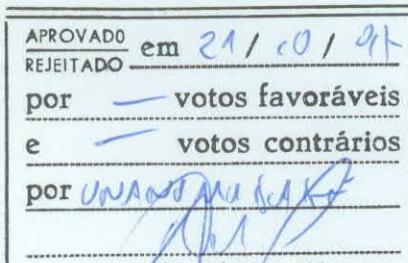 APROVADO
REJEITADO em 21 / 10 /
por — votos favoráveis
e — votos contrários
por UNANIMIDADE